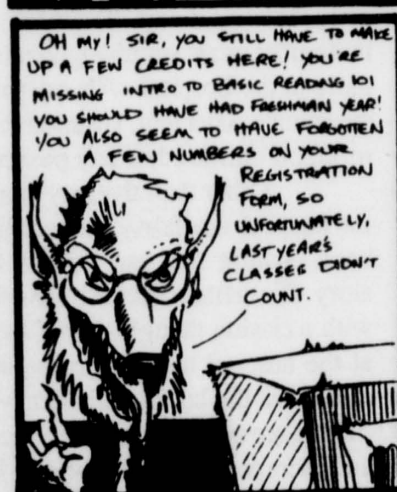 OH MY! SIR, YOU STILL HAVE TO MAKE
UP A FEW CREDITS HERE! YOU'RE
MISSING INTRO TO BASIC READING 101
YOU SHOULD HAVE HAD FRESHMAN YEAR!
YOU ALSO SEEM TO HAVE FORGOTTEN
A FEW NUMBERS ON YOUR
REGISTRATION
FORM, SO
UNFORTUNATELY,
LAST YEAR'S
CLASSES DIDN'T
COUNT.